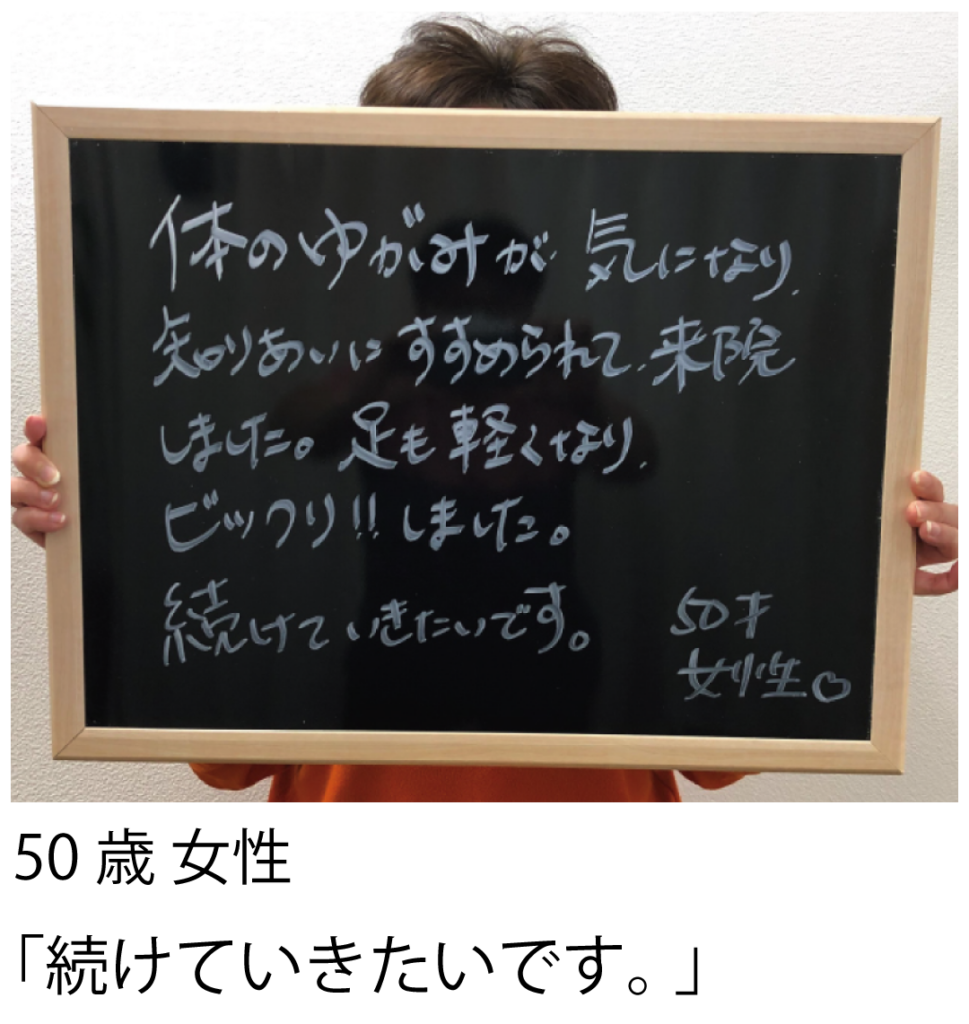 体のゆがみが 気になり、
知りあいにすすめられて、来院
しました。足も軽くなり、
ビックリ!!しました。
続けていきたいです。
50才
女性♡
50 歳 女性
「続けていきたいです。」